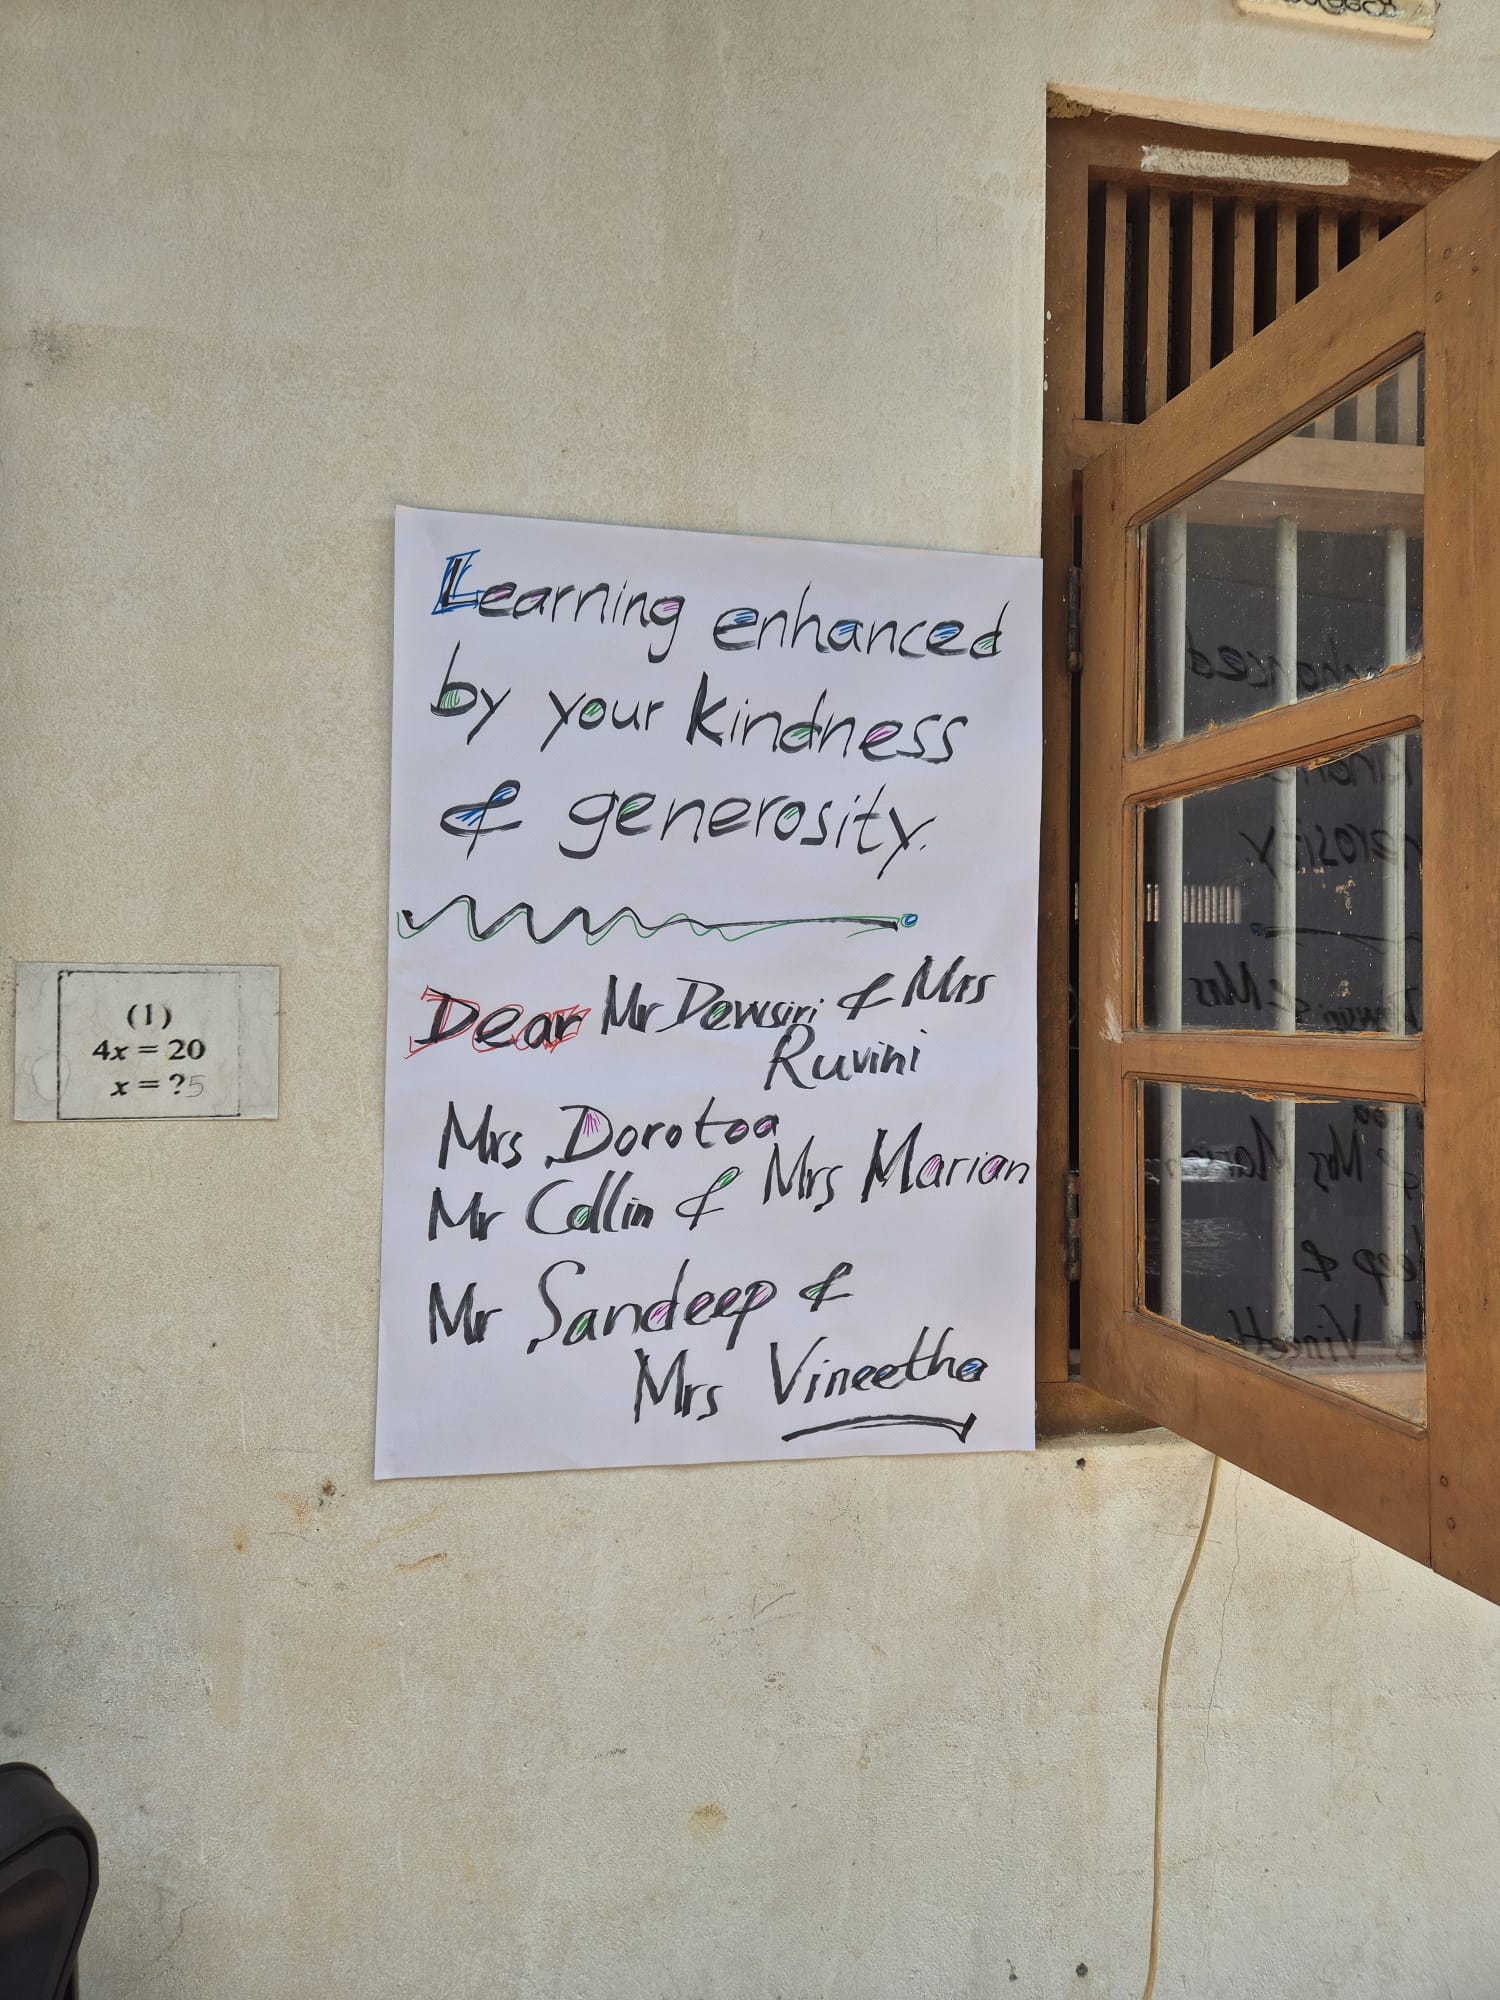 Learning enhanced
by your kindness
& generosity.
Dear Mr Dewsiri & Mrs
Ruvini
Mrs Dorotoa
Mr Collin & Mrs Marian
Mr Sandeep &
Mrs Vineetha
(1)
4x = 20
x = ?5